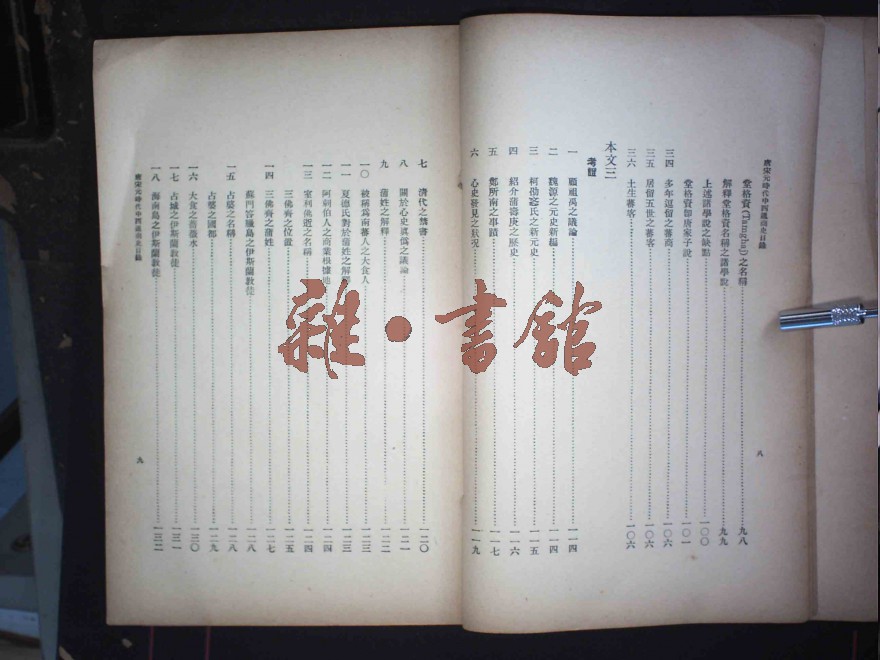 唐宋元時代中西通商史目錄
堂格資(Tamgha)之名稱……九八
解釋堂格資名稱之諸學說……九九
上述諸學說之缺點……一〇〇
堂格資卽唐家子說……一〇一
三四 多年逗留之蕃商……一〇六
三五 居留五世之蕃客……一〇六
三六 土生蕃客……一〇六
本文三
考證
一 顧祖禹之議論……一一四
二 魏源之元史新編……一一四
三 柯劭忞氏之新元史……一一五
四 紹介蒲壽庚之歷史……一一六
五 鄭所南之事蹟……一一七
六 心史發見之狀況……一一九
八
七 清代之禁書……一二〇
八 關於心史眞僞之議論……一二一
九 蒲姓之解釋……一二二
一〇 被稱爲南蕃人之大食人……一二三
一一 夏德氏對於蒲姓之解釋……一二三
一二 阿剌伯人之商業根據地……一二四
一三 室利佛逝之名稱……一二四
三佛齊之位置……一二五
一四 三佛齊之蒲姓……一二七
蘇門答臘島之伊斯蘭敎徒……一二八
一五 占婆之名稱……一二八
占婆之國都……一二九
一六 大食之薔薇水……一三〇
一七 占城之伊斯蘭敎徒……一三一
一八 海南島之伊斯蘭敎徒……一三二
唐宋元時代中西通商史目錄
九
雜·書館